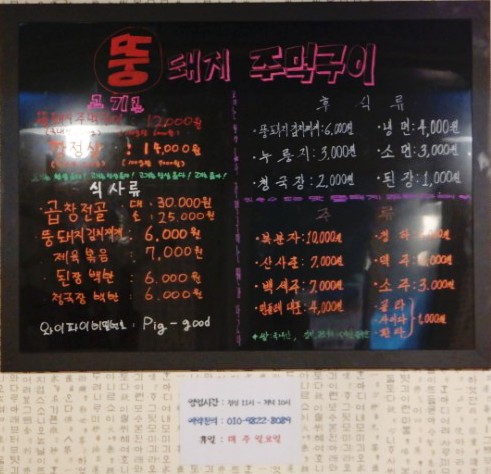 뚱돼지 주먹구이
고기류
뚱돼지주먹구이 : 12,000원
항정살 : 14,000원
식사류
·곱창전골 대 : 30,000원
소 : 25,000원
뚱돼지김치찌개 : 6,000원
제육볶음 : 7,000원
·된장백반 : 6,000원
청국장백반 : 6,000원
와이파이비밀번호 : Pig-good
후식류
·뚱돼지김치찌개 : 6,000원
·누룽지 : 3,000원
·청국장 : 2,000원
·냉면 : 4,000원
·소면 : 3,000원
·된장 : 1,000원
주류
·복분자 : 10,000원
·산사춘 : 7,000원
·백세주 : 7,000원
·민들레대포 : 4,000원
·소주 : 3,000원
·콜라
·사이다
·환타
1,000원
영업시간 : 점심 11시 - 저녁 10시
예약문의 : 010-9822-2029
휴일 : 매주 일요일